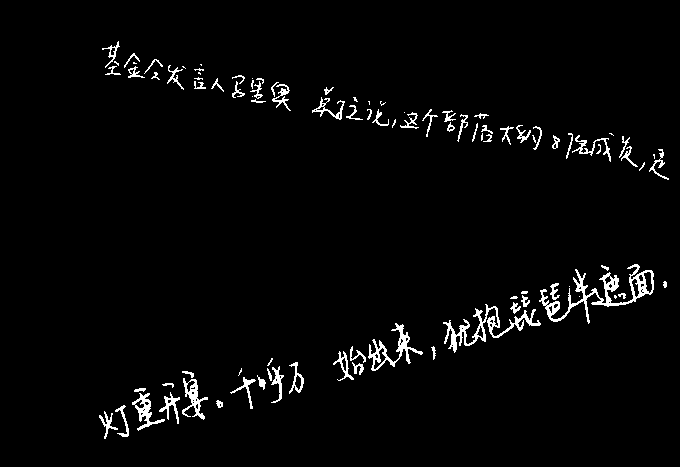 基金会发言人马里奥 莫拉说,这个部落大约8 成员,是
灯重开宴。千呼万 始出来,犹抱琵琶半遮面.